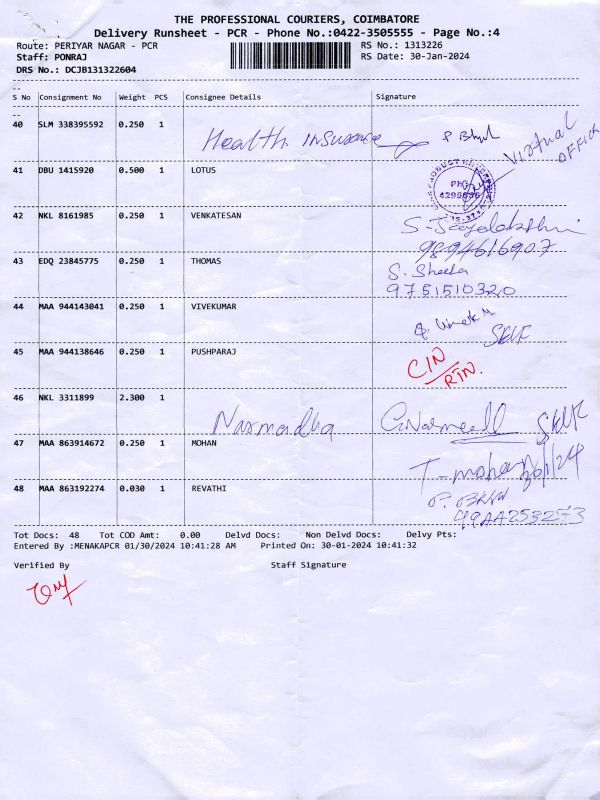 THE PROFESSIONAL COURIERS, COIMBATORE
Delivery Runsheet - PCR - Phone No.:0422-3505555 - Page No.:4
Route: PERIYAR NAGAR - PCR RS No.: 1313226
Staff: PONRAJ RS Date: 30-Jan-2024
DRS No.: DCJB131322604
S No Consignment No Weight PCS Consignee Details Signature
40 SLM 338395592 0.250 1 Health Insurance
VIRTUAL OFFICE
41 DBU 1415920 0.500 1 LOTUS
42 NKL 8161985 0.250 1 VENKATESAN
9894616907
43 EDQ 23845775 0.250 1 THOMAS S. Sheela
9751510320
44 MAA 944143041 0.250 1 VIVEKUMAR
SELF
45 MAA 944138646 0.250 1 PUSHPARAJ CIN
RTN.
46 NKL 3311899 2.300 1 Narmadha SELF
47 MAA 863914672 0.250 1 MOHAN T-mohan
48 MAA 863192274 0.030 1 REVATHI
49AA253273
Tot Docs: 48 Tot COD Amt: 0.00 Delvd Docs: Non Delvd Docs: Delvy Pts:
Entered By :MENAKAPCR 01/30/2024 10:41:28 AM Printed On: 30-01-2024 10:41:32
Verified By Staff Signature